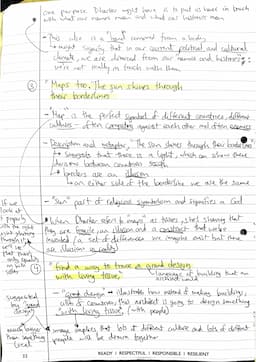 one purpose Dharker might have is to put us back in touch
with what our names mean and what our histories mean
- This idea is a "hand" removed from a body
might signify that in our current political and cultural
climate, we are divorced from our names and histories
we're not really in touch with them.
③ "Maps too. The sun shines through
their borderlines"
- Map is the perfect symbol of different countries, different
cultures - often competing against each other and often enemies
- Description and metaphor, "The sun shines through their borderlines"
suggests that there is a light, which can shine these
divisions between countries
borders are an illusion
on either side of the borderline we are the same
- "Sun" part of religious symbolism and signifies a God
If we
look at
it properly
with the
light
shining
through it
we'll
see
that
When Dharker refers to maps as tissue, she's showing that
they are fragile, an illusion and a construct that we've
invented (a set of differences we imagine exist but these
are illusions, not reality)
④ "find a way to trace a grand design
with living tissue,"
language of building that an
architect would
suggested
by "grand
design"
"Grand design" - illustrates how instead of making buildings,
with
this architect is going to design something
"with living tissue", (with people)
much larger
than something
local
imagery implies that lots of different cultures and lots of different
people will be drawn together
22
READY | RESPECTFUL | RESPONSIBLE | RESILIENT